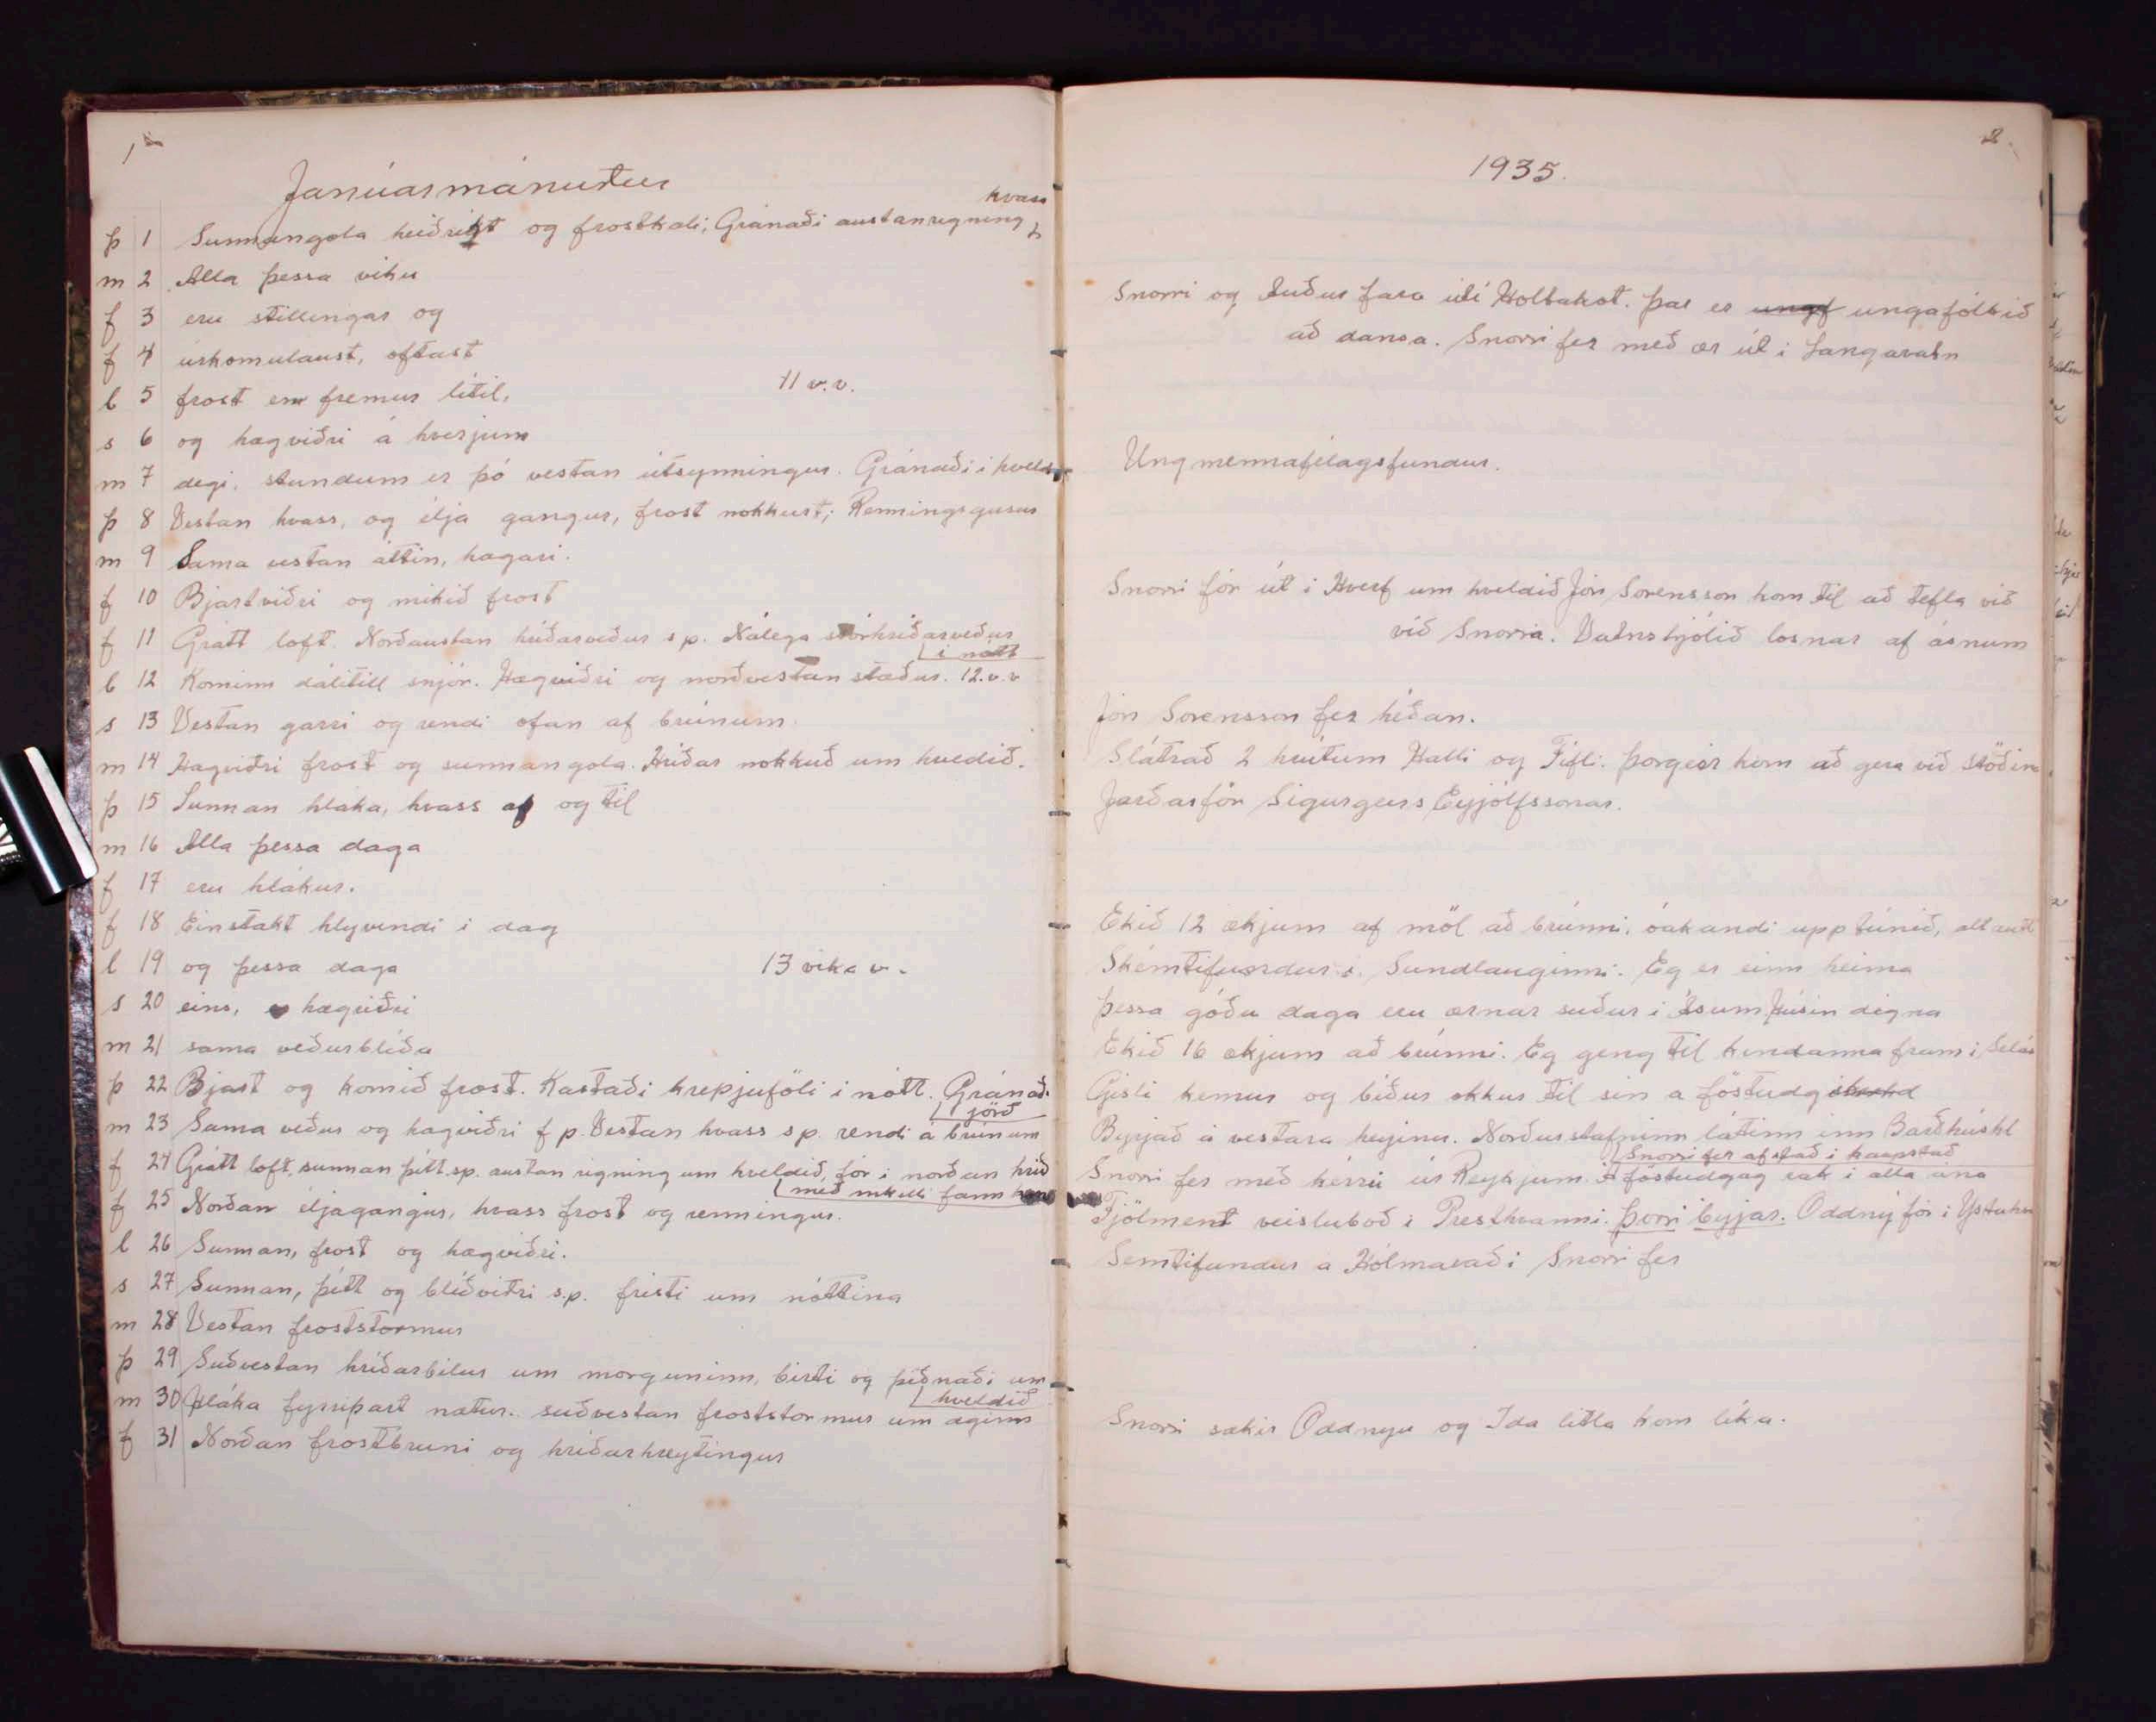 1
Janúarmánuður
kvass
þ 1 Sunnangola heiðrikt og frostkali; Gránaði austanregning
m 2 Alla þessa viku
f 3 eru stillingar og
f 4 úrkomulaust, oftast
l 5 frost en fremur lítil, 11 v.v.
s 6 og hægviðri á hverjum
m 7 degi, stundum er þó vestan útsynningur. Gránaði i kveld
þ 8 Vestan hvass, og élja gangur, frost nokkurt; Renningsgusur
m 9 Sama vestan áttin, hægari.
f 10 Bjartviðri og mikið frost
f 11 Grátt loft. Norðaustan hríðarveður s p. Nálega stórhríðarveður
i nótt
l 12 Kominn dálítill snjór. Hægviðri og norðvestan stæður. 12. v. v
s 13 Vestan garri og rendi ofan af brúnum
m 14 Hægviðri frost og sunnangola. Hríðar nokkuð um kveldið.
þ 15 Sunnan hláka, hvass af og til
m 16 Alla þessa daga
f 17 eru hlákur.
f 18 Einstakt hlyvindi i dag
l 19 og þessa daga 13 vika v.
s 20 eins, hægviðri
m 21 sama veðurblíða
þ 22 Bjart og komið frost. Kastaði krepjuföli i nótt. Gránað.
jörð
m 23 Sama veður og hægviðri f p. Vestan hvass s p. rendi á brúnum
f 24 Grátt loft, sunnan þítt s.p. austan rigning um kveldið, fór i norðan hríð
með mikilli fann
f 25 Norðan éljagangur, hvass frost og renningur.
l 26 Sunnan, frost og hægviðri.
s 27 Sunnan, þítt og blíðviðri s.p. fristi um nóttina
m 28 Vestan froststormur
þ 29 Suðvestan hríðarbilur um morguninn, birti og þiðnaði um
kveldið
m 30 Hláka fyrripart nætur. suðvestan froststormur um dginn
f 31 Norðan frostbruni og hríðarhreytingur
2.
1935.
Snorri og fara úti Holtakot. Þar er ungf ungafólkið
að dansa. Snorri fer með ær út i Langavatn
Ungmennafélagsfundur.
Snorri fór út i Hverf um kveldið Jón Sorensson kom til að tefla við
við Snorra. Vatnshjólið losnar af ásnum
Jón Sorensson fer héðan.
Slátrað 2 hrútum Halli og Fifli. Þorgeir kom að gera við stöðina
Jarðarför Sigurgeirs Eyjólfssonar.
Ekið 12 ækjum af möl að brúnni, óakandi upp túnið, alt autt
Skémtifundur i Sundlauginni. Eg er einn heima
þessa góðu daga eru ærnar suður i Ásum Húsin digna
Ekið 16 ækjum að brúnni. Eg geng til kindanna fram i Selás
Gisli kemur og biður okkur til sin a föstudg
Byrjað á vestara heyinu. Norðurstafninn látinn inn Barðhúshl
Snorri fer afstað i kaupstað
Snorri fer með kérru úr Reykjum. á föstudgag rak i alla ána
Fjölment veisluboð i Presthvammi. Þorri byrjar. Oddný fór i Ystuhv
Semtifundur a Hólmavaði Snorri fer
Snorri sækir Oddnyu og Ida litla kom líka.